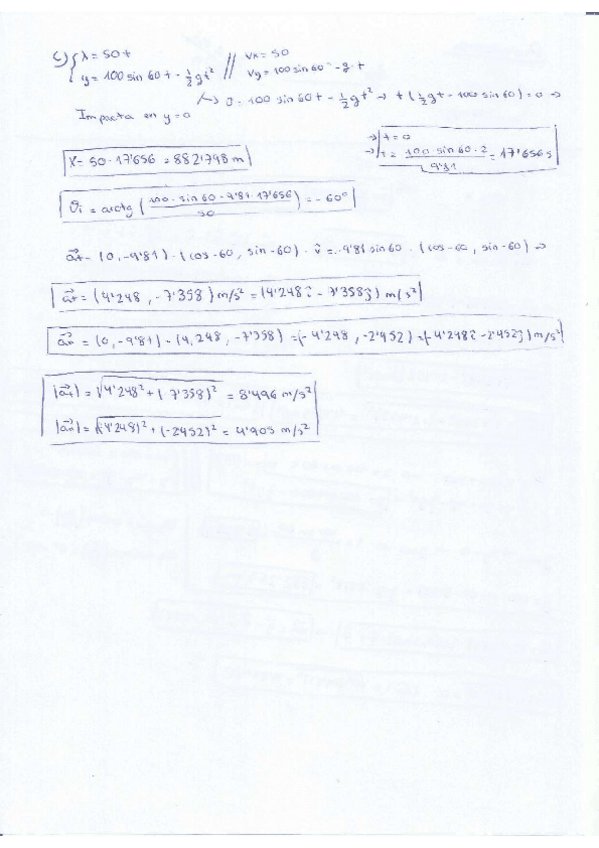 c) { x = 50t // vx = 50
y = 100 sin 60 t - 1/2 g t² // vy = 100 sin 60 - g · t
↳ 0 = 100 sin 60 t - 1/2 g t² → t (1/2 g t - 100 sin 60) = 0 →
Impacta en y = 0
→ t = 0
→ t = 100 · sin 60 · 2 / 9'81 = 17'656 s
x = 50 · 17'656 = 882'798 m
θi = arctg (100 · sin 60 - 9'81 · 17'656 / 50) = -60°
at = (0, -9'81) · (cos -60, sin -60) · û = -9'81 sin 60 · (cos -60, sin -60) →
at = (4'248, -7'358) m/s² = (4'248 î - 7'358 ĵ) m/s²
an = (0, -9'81) - (4,248, -7'358) = (-4'248, -2'452) = (-4'248 î - 2'452 ĵ) m/s²
|at| = √4'248² + (7'358)² = 8'496 m/s²
|an| = √(4'248)² + (-2452)² = 4'905 m/s²